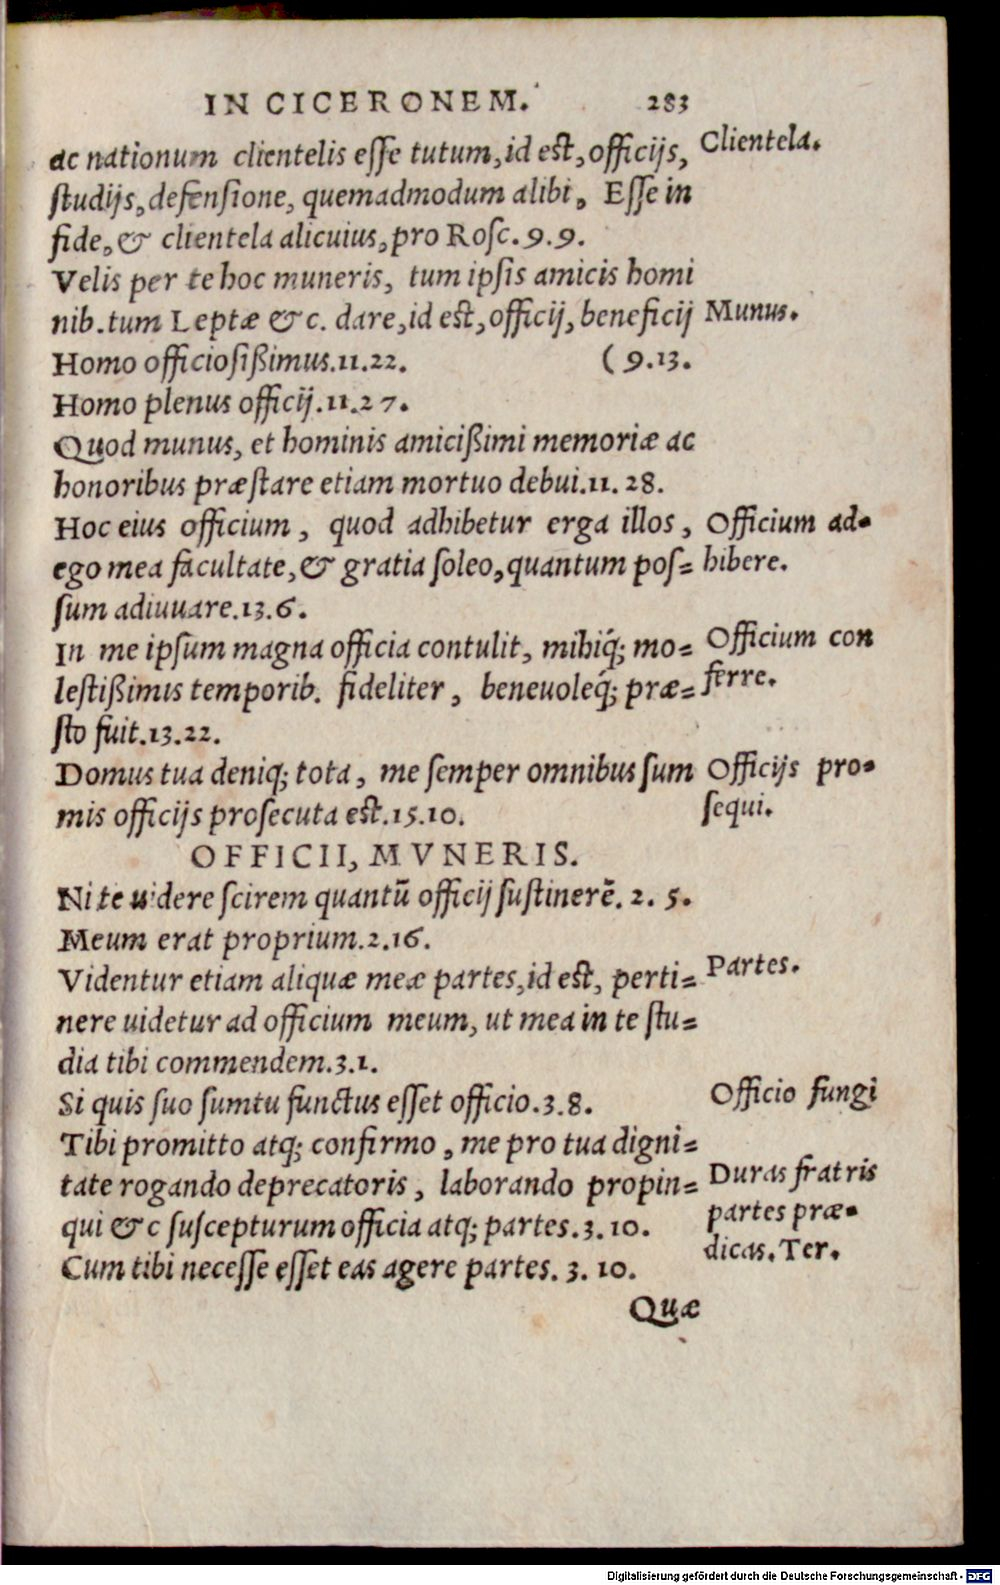 IN CICERONEM. 283
ac nationum clientelis esse tutum, id est, officijs, Clientela.
studijs, defensione, quemadmodum alibi, Esse in
fide, & clientela alicuius, pro Rosc. 9. 9.
Velis per te hoc muneris, tum ipsis amicis homi
nib. tum Leptæ &c. dare, id est, officij, beneficij Munus.
Homo officiosißimus. 11. 22. ( 9. 13.
Homo plenus officij. 11. 27.
Quod munus, et hominis amicißimi memoriæ ac
honoribus præstare etiam mortuo debui. 11. 28.
Hoc eius officium, quod adhibetur erga illos, Officium ad-
ego mea facultate, & gratia soleo, quantum pos= hibere.
sum adiuuare. 13. 6.
In me ipsum magna officia contulit, mihiq́; mo= Officium con
lestißimis temporib. fideliter, beneuoleq́; præ= ferre.
sto fuit. 13. 22.
Domus tua deniq; tota, me semper omnibus sum Officijs pro-
mis officijs prosecuta est. 15. 10. sequi.
OFFICII, MVNERIS.
Ni te uidere scirem quantū officij sustinerē. 2. 5.
Meum erat proprium. 2. 16.
Videntur etiam aliquæ meæ partes, id est, perti= Partes.
nere uidetur ad officium meum, ut mea in te stu=
dia tibi commendem. 3. 1.
Si quis suo sumtu functus esset officio. 3. 8. Officio fungi
Tibi promitto atq; confirmo, me pro tua digni=
tate rogando deprecatoris, laborando propin= Duras fratris
qui &c suscepturum officia atq; partes. 3. 10. partes præ-
Cum tibi necesse esset eas agere partes. 3. 10. dicas. Ter.
Quæ
Digitalisierung gefördert durch die Deutsche Forschungsgemeinschaft - DFG